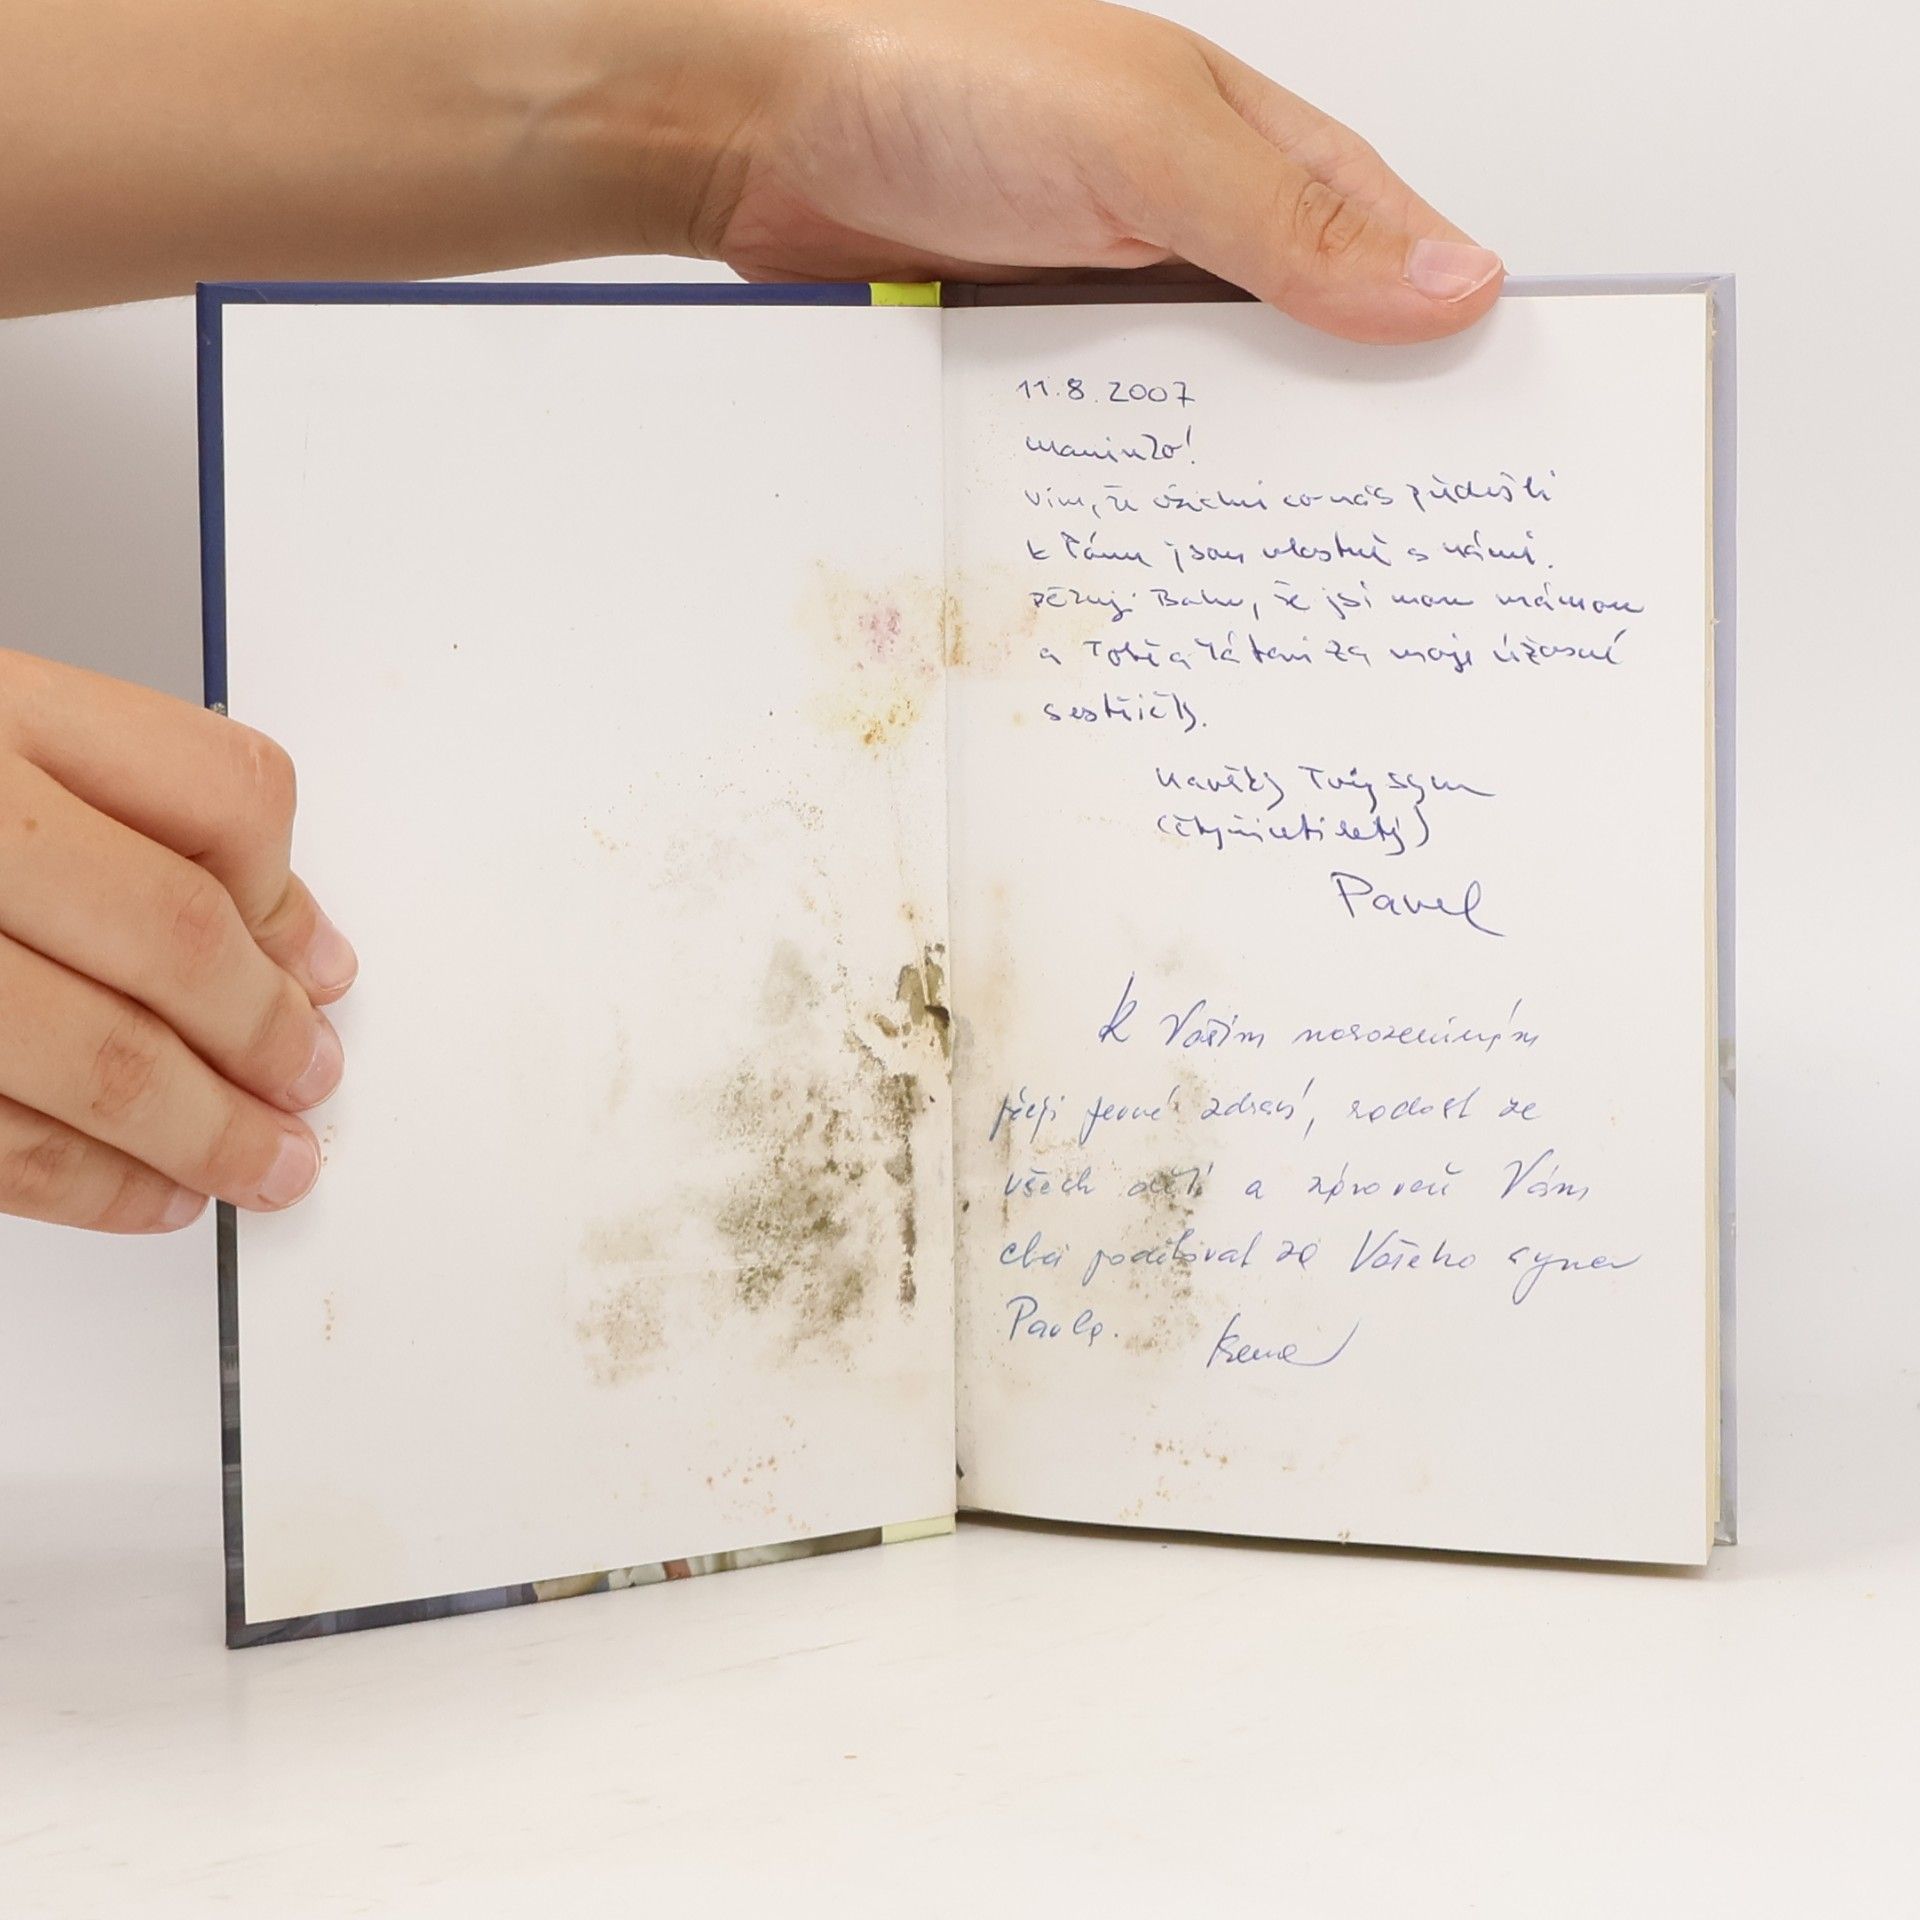 11.8.2007
maminko!
vím, že všichni co nás předešli
k Pánu jsou vlastně s námi.
Děkuji Bohu, že jsi mou mámou
a Tobě a Tátovi za moje úžasné
sestřičky.
Navěky Tvůj syn
(čtyřicetiletý)
Pavel
K Vašim narozeninám
přeji pevné zdraví, radost ze
všech dětí a zároveň Vám
chci poděkovat za Vašeho syna
Pavla.
Irena